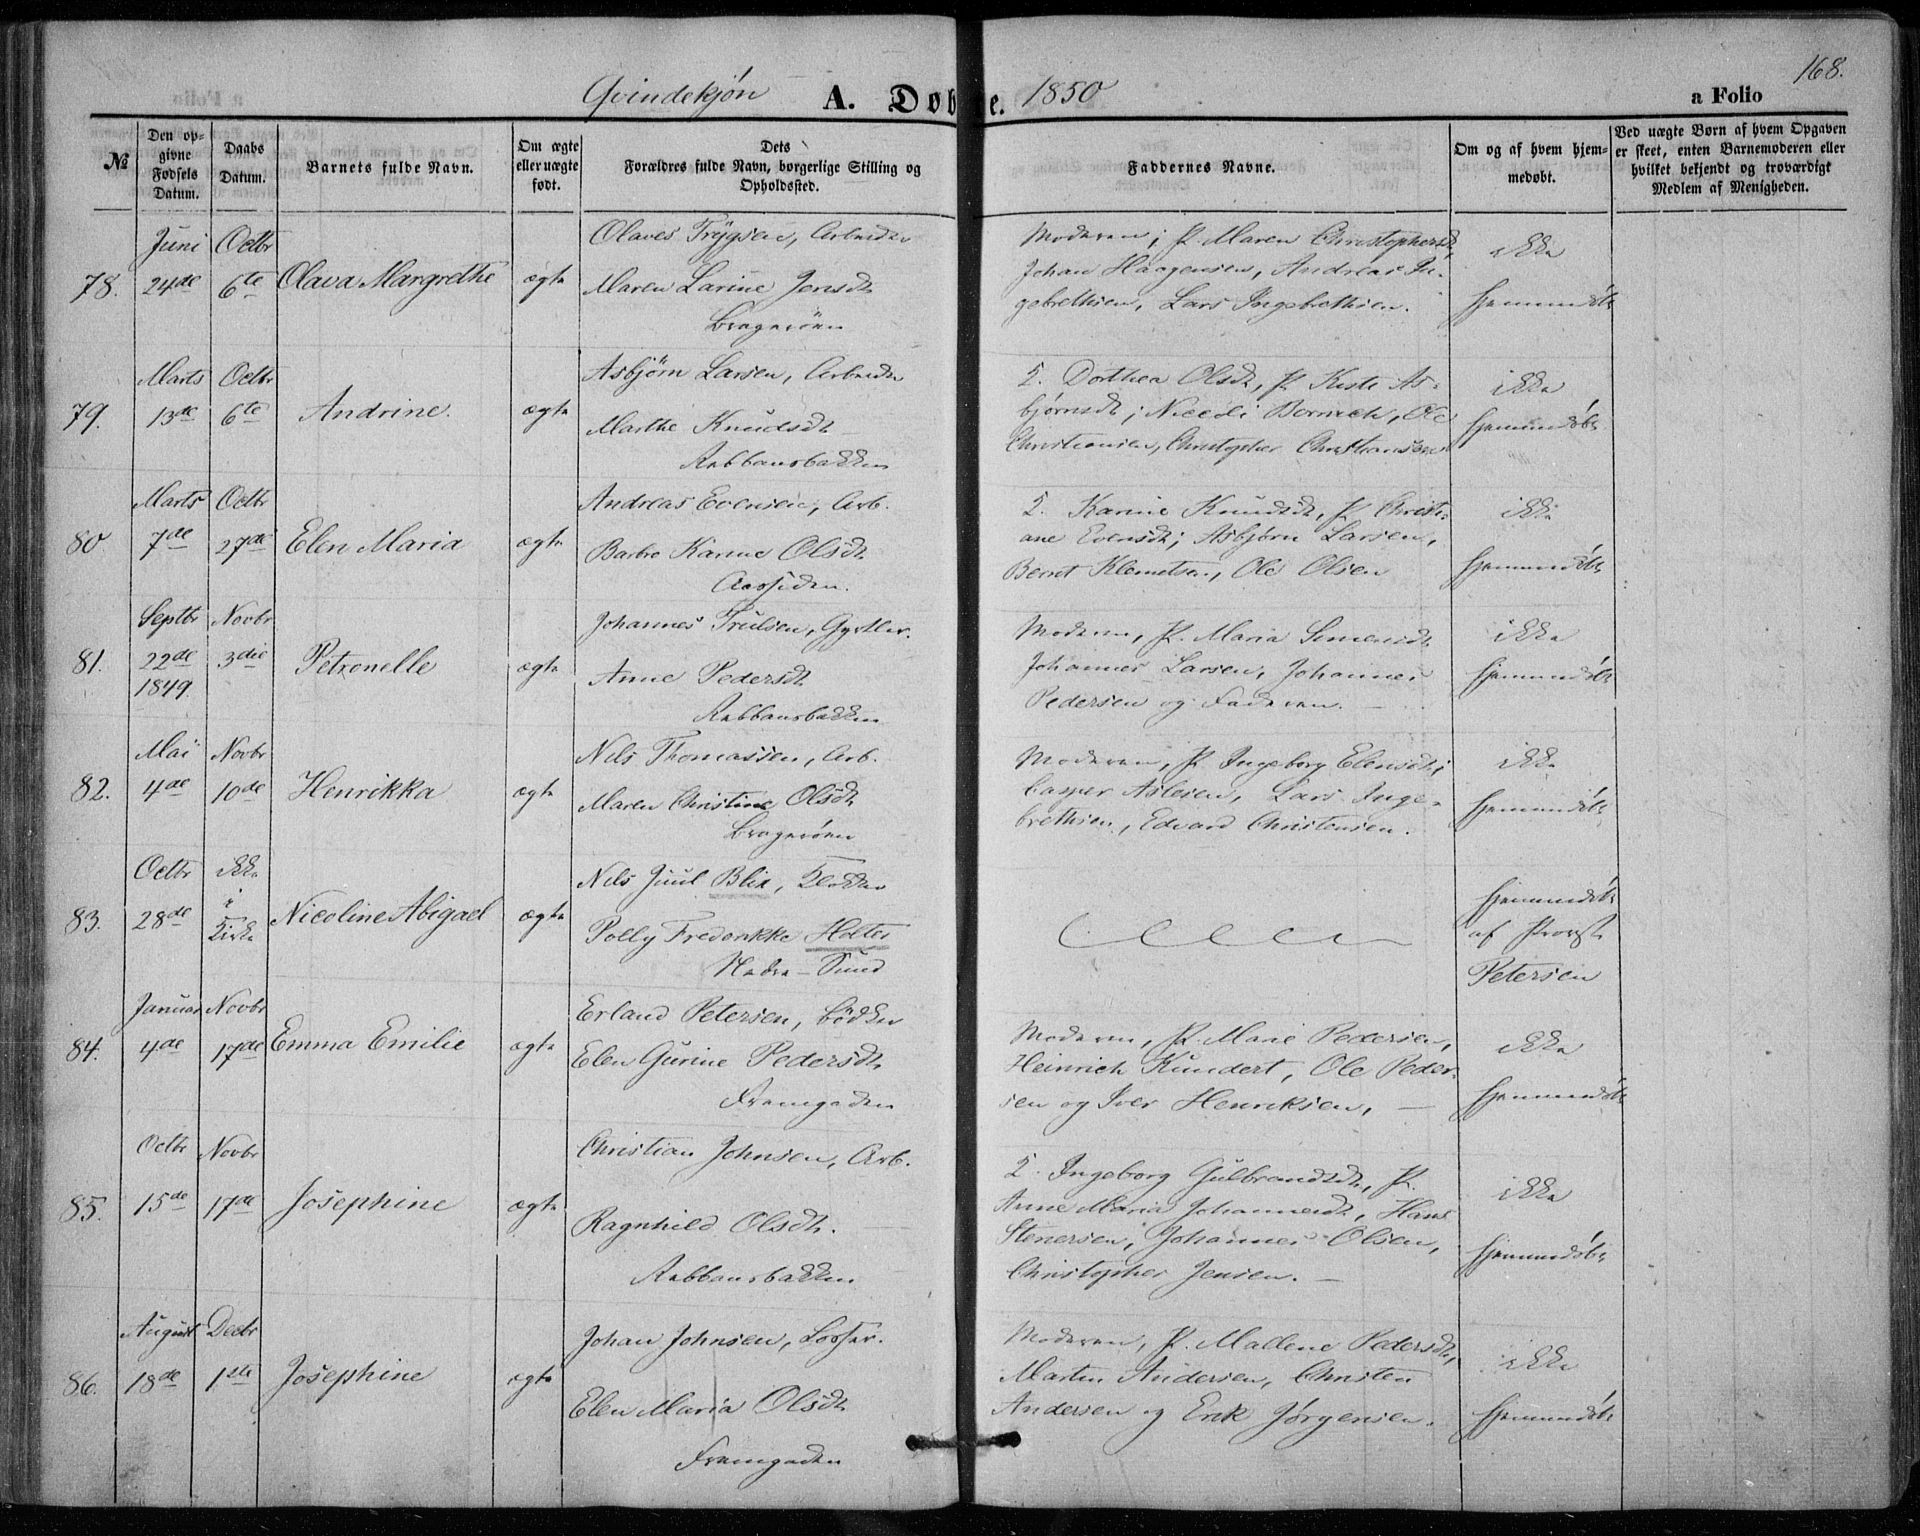 168.
Qvindekjøn A. Døbte. 1850 a Folio
№
Den op-
givne
Fødsels
Datum.
Daabs
Datum.
Barnets fulde Navn.
Om ægte
eller uægte
født.
Dets
Forældres fulde Navn, borgerlige Stilling og
Opholdssted.
Faddernes Navne.
Om og af hvem hjem-
medøbt.
Ved uægte Børn af hvem Opgaven
er skeet, enten Barnemoderen eller
hvilket bekjendt og troværdigt
Medlem af Menigheden.
78.
Juni
24de
Octbr
6te
Olava Margrethe
ægte
Olaves Trygsen, Arbeider
Maren Larine Jensdt
Bragerøen
Moderen, P. Maren Christophersdt,
Johan Haagensen, Andreas In-
gebrethsen, Lars Ingebrethsen.
ikke
hjemmedøbt
79.
Marts
13de
Octbr
6te
Andrine.
ægte
Asbjørn Larsen, Arbeider
Marthe Knudsdt
Rabbansbakken
Dorthea Olsdt, P. Kisti As-
bjørnsdt; Nicoli Ole
Christiansen, Christopher Christiansen
ikke
hjemmedøbt
80
Marts
7de
Octbr
27de
Elen Maria
ægte
Andreas Evensen, Arb.
Barbro Karine Olsdt
Aassiden.
Karine Knudsdt, P. Christi-
ane Evensdt; Asbjørn Larsen,
Bernt Klemetsen, Ole Olsen
ikke
hjemmedøbt
81.
Septbr
22de
1849
Novbr
3die
Petronelle
ægte
Johannes Trulsen, Gyrtler.
Anne Pedersdt
Rabbansbakken
Moderen, P. Maria Simensdt
Johannes Larsen, Johannes
Pedersen og Faderen.
ikke
hjemmedøbt
82.
Mai
4de
Novbr
10de
Henrikka
ægte
Nils Thomassen, Arb.
Maren Christine Olsdt
Bragerøen
Moderen, P. Ingeborg Elensdt;
Casper Aslesen, Lars Inge-
brethsen, Edvard Christensen.
ikke
hjemmedøbt
83.
Octbr
28de
ikke
i
Kirke
Nicoline Abigael
ægte
Nils Juul Blix, Klokker
Polly Frederikke Holter
Nedre-Sund
hjemmedøbt
af Provst
Petersen
84.
Januar
4de
Novbr
17de
Emma Emilie
ægte
Erland Petersen, Bødker
Elen Gurine Pedersdt
Framgaden
Moderen, P. Marie Pedersen,
Heinrich Kundert, Ole Peder-
sen og Iver Henriksen,
ikke
hjemmedøbt
85.
Octbr
15de
Novbr
17de
Josephine
ægte
Christian Johnsen, Arb.
Ragnhild Olsdt.
Rabbansbakken
Ingeborg Gulbrandsdt, P.
Anne Maria Johannesdt, Hans
Stenersen, Johannes Olsen,
Christopher Jensen.
ikke
hjemmedøbt
86.
August
18de
Decbr
1ste
Josephine
ægte
Johan Johnsen, Losser.
Elen Maria Olsdt
Framgaden
Moderen, P. Mallene Pedersdt,
Martin Andersen, Christen
Andersen og Erik Jørgensen.
ikke
hjemmedøbt